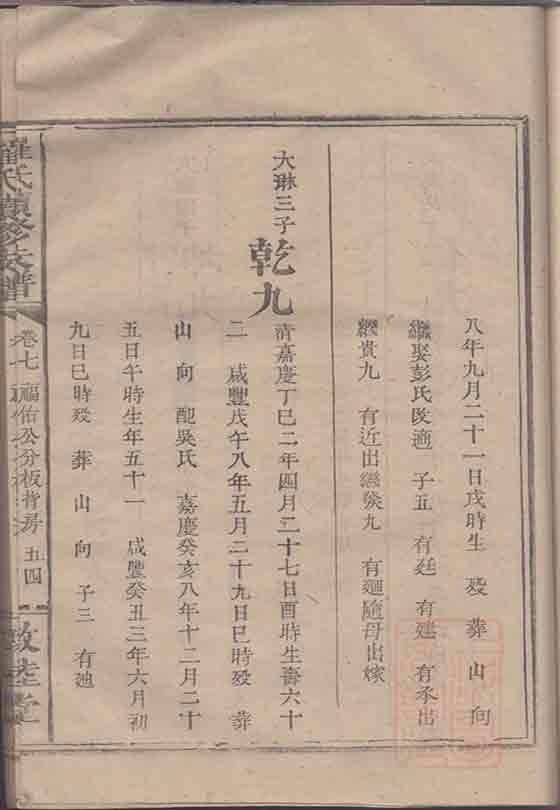 八年九月二十一日戌時生 歿 葬 山 向
繼娶彭氏改適 子五 有廷 有建 有承出
繼貴九 有近出繼癸九 有廻隨母出嫁
大琳三子 乾九 清嘉慶丁巳二年四月二十七日酉時生壽六十
二 咸豐戊午八年五月二十九日巳時歿 葬
山 向 配吳氏 嘉慶癸亥八年十二月二十
五日午時生年五十一 咸豐癸丑三年六月初
九日巳時歿 葬 山 向 子三 有廸
羅氏續修支譜 卷七 福佑公分板背房 五四 敦睦堂